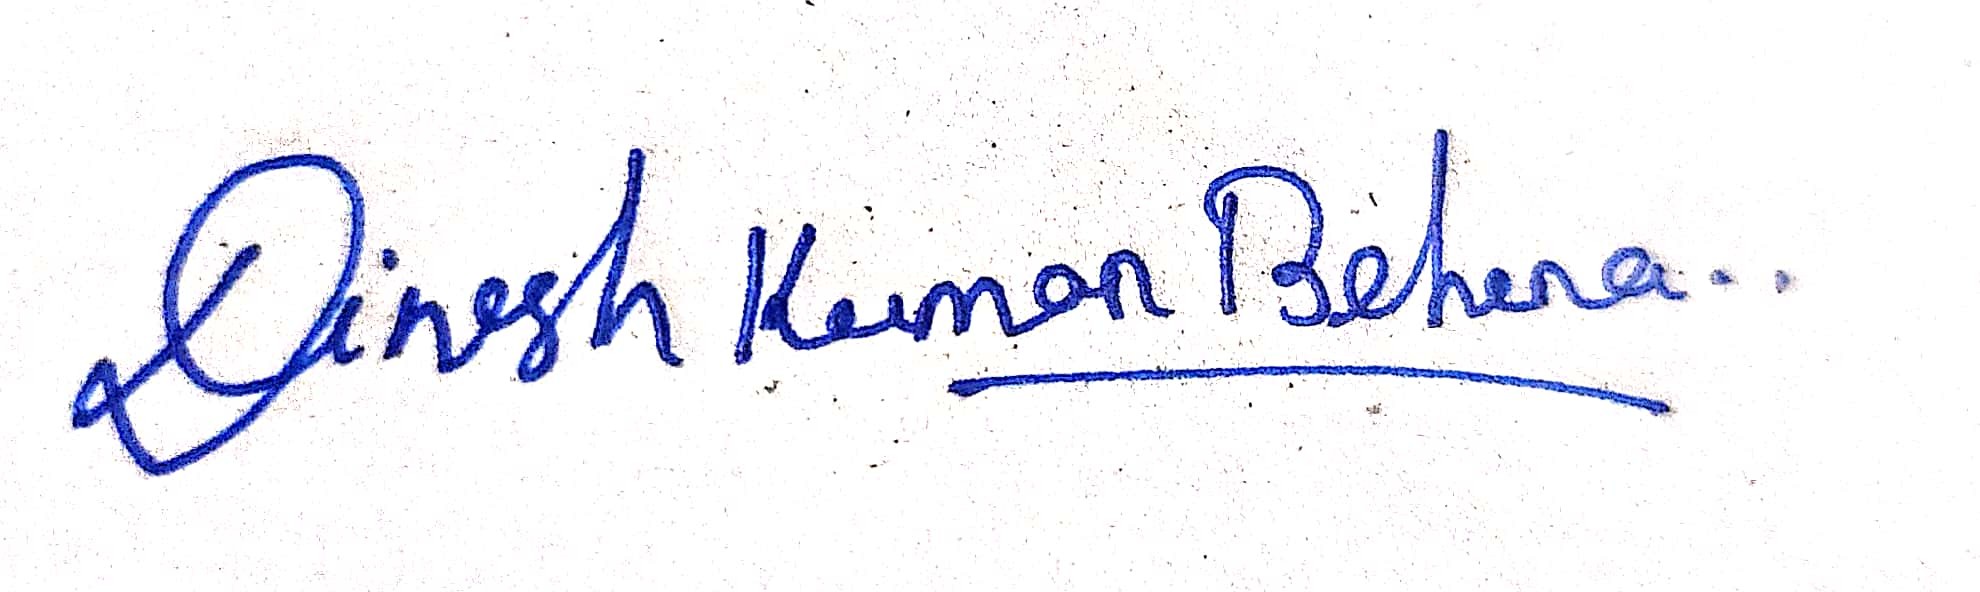 Dinesh Kumar Behera..